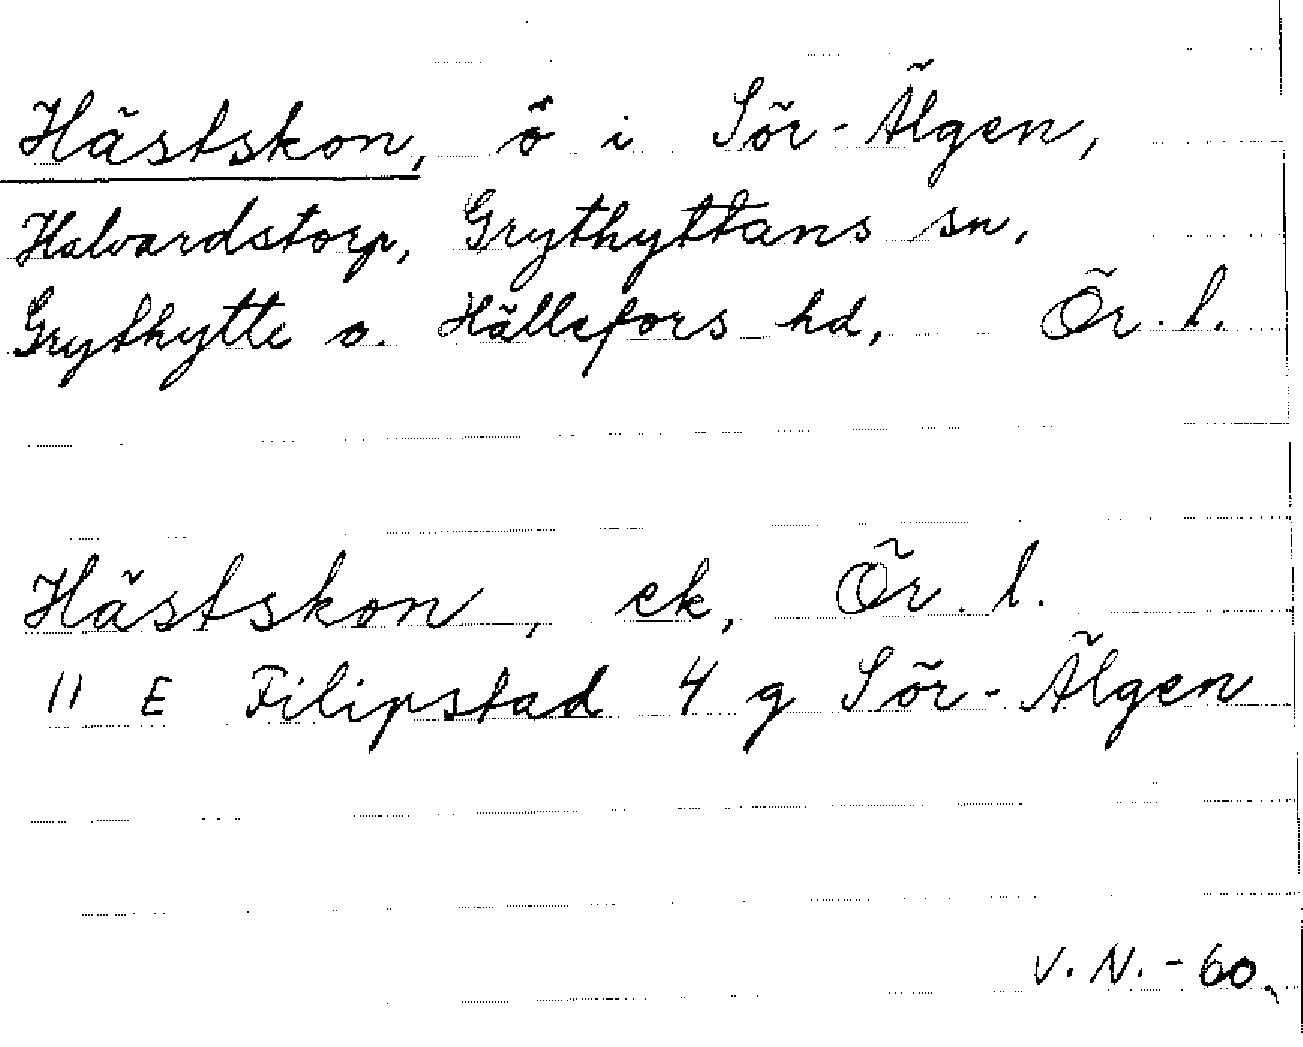 Hästskon, ö i Sör-Älgen,
Halvardstorp, Grythyttans sn,
Grythytte o. Hällefors hd, Ör. l.
Hästskon, ek, Ör. l.
11 E Filipstad 4 g Sör-Älgen
V. N. - 60.